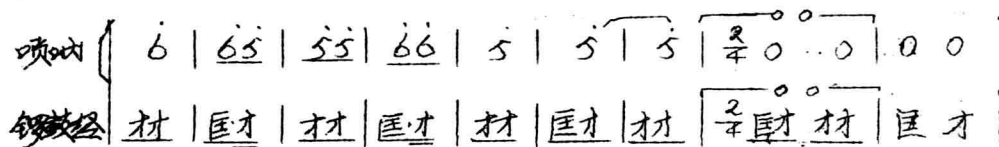 唢呐 6̇ | 6̇5̇ | 5̇5̇ | 6̇6̇ | 5̇ | 5̇ | 5̇ | 2/4 0 0 | 0 0
锣鼓经 才才 | 匡·才 | 才才 | 匡·才 | 才才 | 匡才 | 才才 | 2/4 匡才 才才 | 匡 才